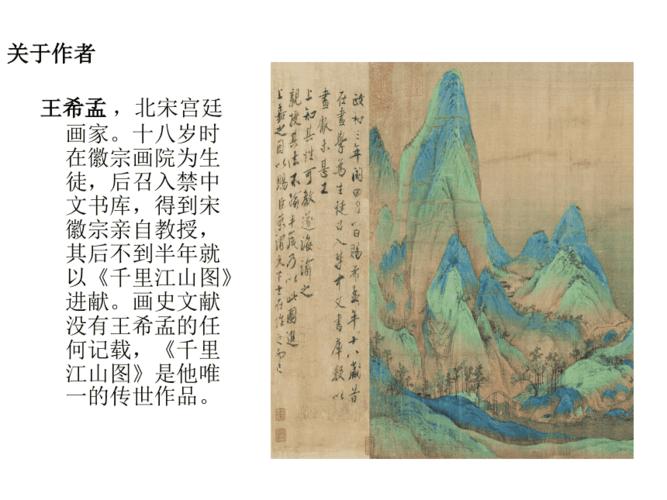 关于作者
王希孟，北宋宫廷
画家。十八岁时
在徽宗画院为生
徒，后召入禁中
文书库，得到宋
徽宗亲自教授，
其后不到半年就
以《千里江山图》
进献。画史文献
没有王希孟的任
何记载，《千里
江山图》是他唯
一的传世作品。
政和三年閏四月日賜希孟年十八歲昔
在畫學為生徒召入禁中文書庫數以
畫獻未甚工
上知其性可教遂誨諭之
親授其法不踰半歲乃以此圖進
上嘉之因以賜臣京謂天下士在作之而已